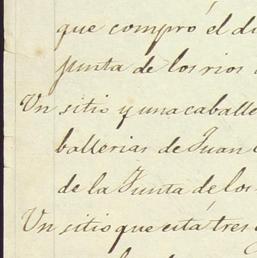 que compró el di
Junta de los rios
Un sitio y una caballe
ballerias de Juan
de la Junta de los
Un sitio que está tres